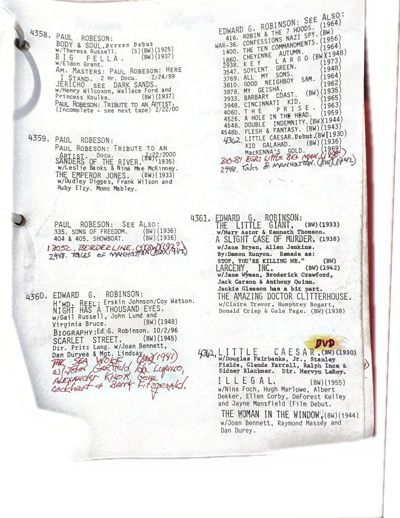 4358. PAUL ROBESON:
BODY & SOUL. Screen Debut
w/Theresa Russell. (S)(BW)(1925)
BIG FELLA. (BW)(1937)
w/Eldon Grant.
AM. MASTERS: PAUL ROBESON: HERE
I STAND. 2 Hr. Docu. 2/24/99
JERICHO SEE DARK SANDS.
w/Henry Wilcoxon, Wallace Ford and
Princess Kouika. (BW)(1937)
PAUL ROBESON: TRIBUTE TO AN ARTIST.
(Incomplete - see next tape) 2/22/00
4359. PAUL ROBESON:
PAUL ROBESON: TRIBUTE TO AN
ARTIST. Docu. 2/22/2000
SANDERS OF THE RIVER. (BW)(1935)
w/Leslie Banks & Nina Mae McKinney.
THE EMPEROR JONES. (BW)(1933)
w/Dudley Digges, Frank Wilson and
Ruby Elzy, Moms Mabley.
PAUL ROBESON: SEE ALSO:
335. SONG OF FREEDOM. (BW)(1936)
404 & 405. SHOWBOAT. (BW)(1936)
1305E. BORDERLINE.
2948. TALES OF MANHATTAN (BW)(1942)
4360. EDWARD G. ROBINSON:
H'WD. REEL: Erskin Johnson/Coy Watson.
NIGHT HAS A THOUSAND EYES.
w/Gail Russell, John Lund and
Virginia Bruce. (BW)(1948)
BIOGRAPHY: Ed G. Robinson. 10/2/96
SCARLET STREET. (BW)(1945)
Dir. Fritz Lang. w/Joan Bennett,
Dan Duryea & Mgt. Lindsay.
THE SEA WOLF (BW)(1941)
w/John Garfield, Ida Lupino,
Alexander Knox, Gene
Lockhart & Barry Fitzgerald.
EDWARD G. ROBINSON: SEE ALSO:
416. ROBIN & THE 7 HOODS. (1964)
WAR-36. CONFESSIONS NAZI SPY. (BW)
1400. THE TEN COMMANDMENTS. (1956)
1860. CHEYENNE AUTUMN. (1964)
2938. KEY LARGO (BW)(1948)
3547. SOYLENT GREEN. (1973)
3769. ALL MY SONS. (1948)
3810. GOOD NEIGHBOR SAM. (1964)
3878. MY GEISHA. (1962)
3933. BARBARY COAST. (BW)(1935)
3948. CINCINNATI KID. (1965)
4060. THE PRISE. (1963)
4526. A HOLE IN THE HEAD. (1959)
4548. DOUBLE INDEMNITY. (BW)(1944)
4548b. FLESH & FANTASY. (BW)(1943)
4362. LITTLE CAESAR. Debut. (BW)(1930)
KID GALAHAD. (BW)(1936)
MacKENNA'S GOLD.
2948. TALES OF MANHATTAN. (BW)(1942)
4361. EDWARD G. ROBINSON:
THE LITTLE GIANT. (BW)(1933)
w/Mary Astor & Kenneth Thomson.
A SLIGHT CASE OF MURDER. (1938)
w/Jane Bryan, Allen Jenkins.
By: Damon Runyon. Remade as:
STOP, YOU'RE KILLING ME." (BW)
LARCENY, INC. (BW)(1942)
w/Jane Wyman, Broderick Crawford,
Jack Carson & Anthony Quinn.
Jackie Gleason has a bit part.
THE AMAZING DOCTOR CLITTERHOUSE.
w/Claire Trevor, Humphrey Bogart,
Donald Crisp & Gale Page. (BW)(1938)
DVD
4362. LITTLE CAESAR. (BW)(1930)
w/Douglas Fairbanks, Jr., Stanley
Fields, Glenda Farrell, Ralph Ince &
Sidney Blackmer. Dir. Mervyn LeRoy.
ILLEGAL. (BW)(1955)
w/Nina Foch, Hugh Marlowe, Albert
Dekker, Ellen Corby, DeForest Kelley
and Jayne Mansfield (Film Debut.
THE WOMAN IN THE WINDOW. (BW)(1944)
w/Joan Bennett, Raymond Massey and
Dan Durey.